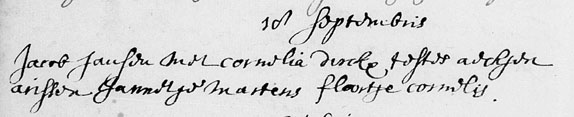 18 septembris
Jacob Jansen met cornelia dirckx testes aechjen
arissen Jannetje martens floortje cornelis.